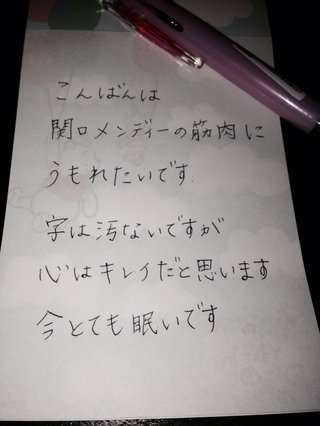 こんばんは
関口メンディーの筋肉に
うもれたいです
字は汚ないですが
心はキレイだと思います
今とても眠いです